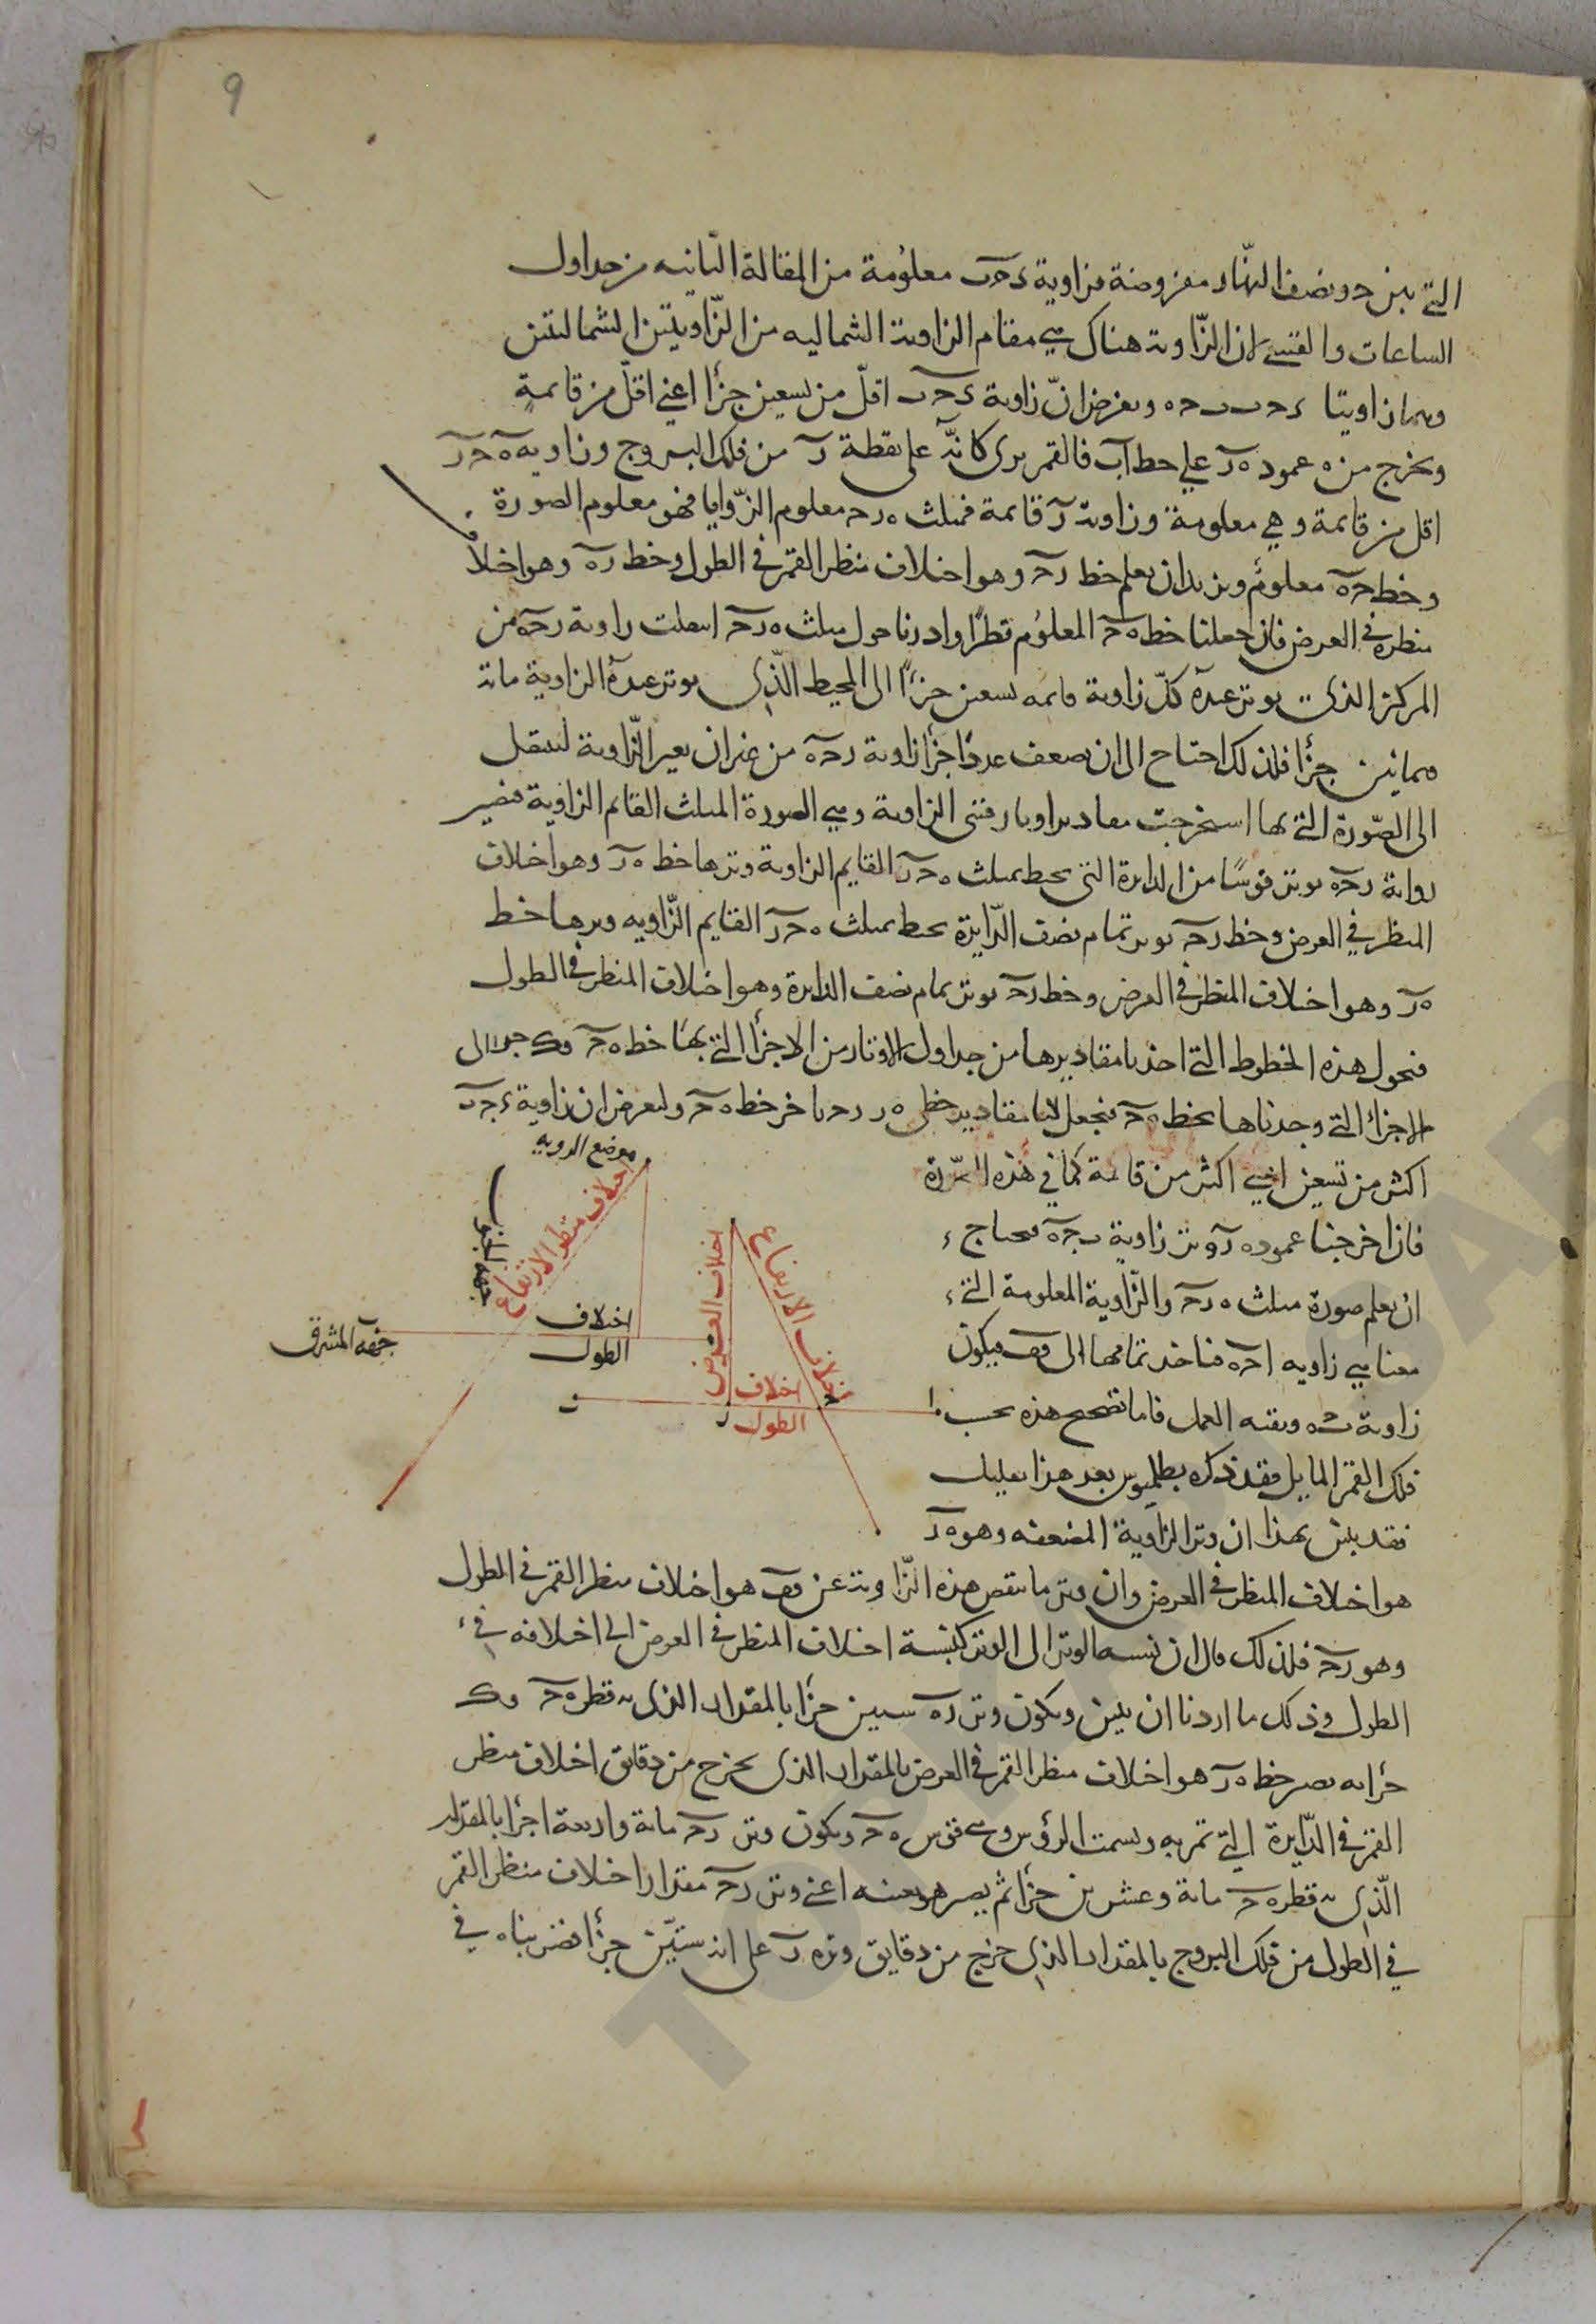 9
التي بين ح ونصف النهار مفروضة فزاوية ىحب معلومة من المقالة الثانيه من جداول
الساعات والقسي لان الزاوية هناك هي مقام الزاوية الشماليه من الزاويتين الشماليتين
وهما زاويتا ىحب بحه ونفرض ان زاوية ىحب اقل من تسعين جزأ اعني اقل من قايمة
ونخرج من ه عمود هر علي خط اب فالقمر يرى كانه على نقطة ر من فلك البروج وزاويه هحر
اقل من قايمة وهي معلومة وزاوية ر قايمة فمثلث هرح معلوم الزوايا فهو معلوم الصورة
وخط حه معلوم ونريد ان نعلم خط رح وهو اختلاف منظر القمر في الطول وخط ره وهو اختلاف
منظره في العرض فان جعلنا خط هح المعلوم قطرا وادرنا حول مثلث هرح انتقلت زاوية رحه من
المركز الذي يوتر عنده كل زاوية قايمه تسعين جزءا الى المحيط الذي يوتر عنده الزاوية ماية
وثمانين جزأ فلذلك احتاح الى ان يضعف عدد اجزأ زاوية رحه من غير ان يغير الزاوية لينتقل
الى الصورة التي بها استخرجت مقادير اوتار الزاوية وهي الصورة المثلث القايم الزاوية فيصير
زواية رحه يوتر قوسا من الدايرة التي يحيط بمثلث هحر القايم الزاوية وترها خط هر وهو اختلاف
المنظر في العرض وخط رح يوتر تمام نصف الدايرة يحيط بمثلث هحر القايم الزاويه وترها خط
هر وهو اختلاف المنظر في العرض وخط رح يوتر تمام نصف الدايرة وهو اختلاف المنظر في الطول
فنحول هذه الخطوط التي اخذنا مقاديرها من جداول الاوتار من الاجزأ التي بها خط هح قك جزأ الى
الاجزاء التي وجدناها بخط هح فنجعل لنا مقادير خطي هر رح باخر خط هح ولنفرض ان زاوية ىحب
اكثر من تسعين اعني اكثر من قايمة كما في هذه الصورة
فاذا اخرجنا عمود هر وتر زاوية بحه نحتاج
ان نعلم صورة مثلث هرح والزاوية المعلومة التي
معنا هي زاويه احه فناخذ تمامها الى قف فيكون
زاوية بحه وبقيه العمل فاما تصحح هذه بحسب
فلك القمر المايل فقد ذكره بطلميوس بعد هذا بقليل
فقد بين بهذا ان وتر الزاوية المضعفه وهو هر
هو اختلاف المنظر في العرض وان وتر ما ينقص هذه الزاوية عن قف هو اختلاف منظر القمر في الطول
وهو رح فلذلك قال ان نسبه الوتر الى الوتر كنسبة اختلاف المنظر في العرض الى اختلافه في
الطول وذلك ما اردنا ان نبين ويكون وتر ره ستين جزأ بالمقدار الذي به قطر هح قك
جزأ به يصير خط هر هو اختلاف منظر القمر في العرض بالمقدار الذي يخرج من دقايق اختلاف منظر
القمر في الدايرة التي تمر به وبسمت الرؤس وهي قوس هح ويكون وتر رح ماية واربعة اجزأ بالمقدار
الذي به قطر هح ماية وعشرين جزأ ثم يصير هو بعينه اعني وتر رح مقدار اختلاف منظر القمر
في الطول من فلك البروج بالمقدار الذي خرج من دقايق وتر هر على انه ستين جزأ فضربناه في
موضع الرويه
اختلاف منظر الارتفاع
جهة الجنوب
اختلاف
الطول
جهة المشرق
اختلاف العرض
اختلاف الارتفاع
اختلاف
الطول
ب
ر
ح
ا
TOPKAPI SARAYI